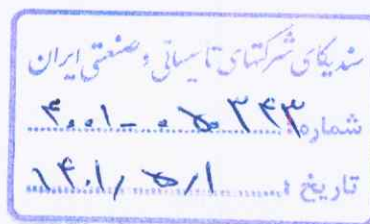 سندیکای شرکتهای تاسیساتی و صنعتی ایران
شماره: ۴۰۰۱-۰۵۳۴۳
تاریخ: ۱۴۰۱/۵/۱